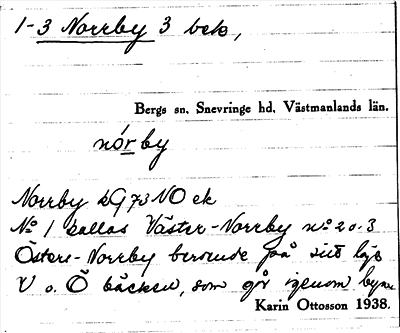 1-3 Norrby 3 bek,
Bergs sn. Snevringe hd. Västmanlands län.
nórby
Norrby kG 73 NO ek
No 1 kallas Väster-Norrby no 2 o. 3
Östers-Norrby beroende på sitt läge
V o. Ö bäcken, som går igenom byn
Karin Ottosson 1938.